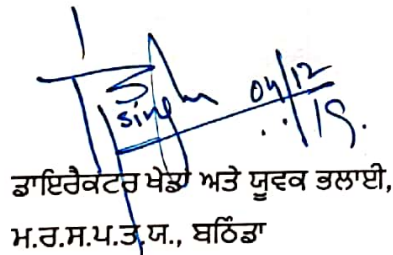 singh 04/12
/19.
ਡਾਇਰੈਕਟਰ ਖੇਡਾਂ ਅਤੇ ਯੂਵਕ ਭਲਾਈ,
ਮ.ਰ.ਸ.ਪ.ਤ.ਯ., ਬਠਿੰਡਾ